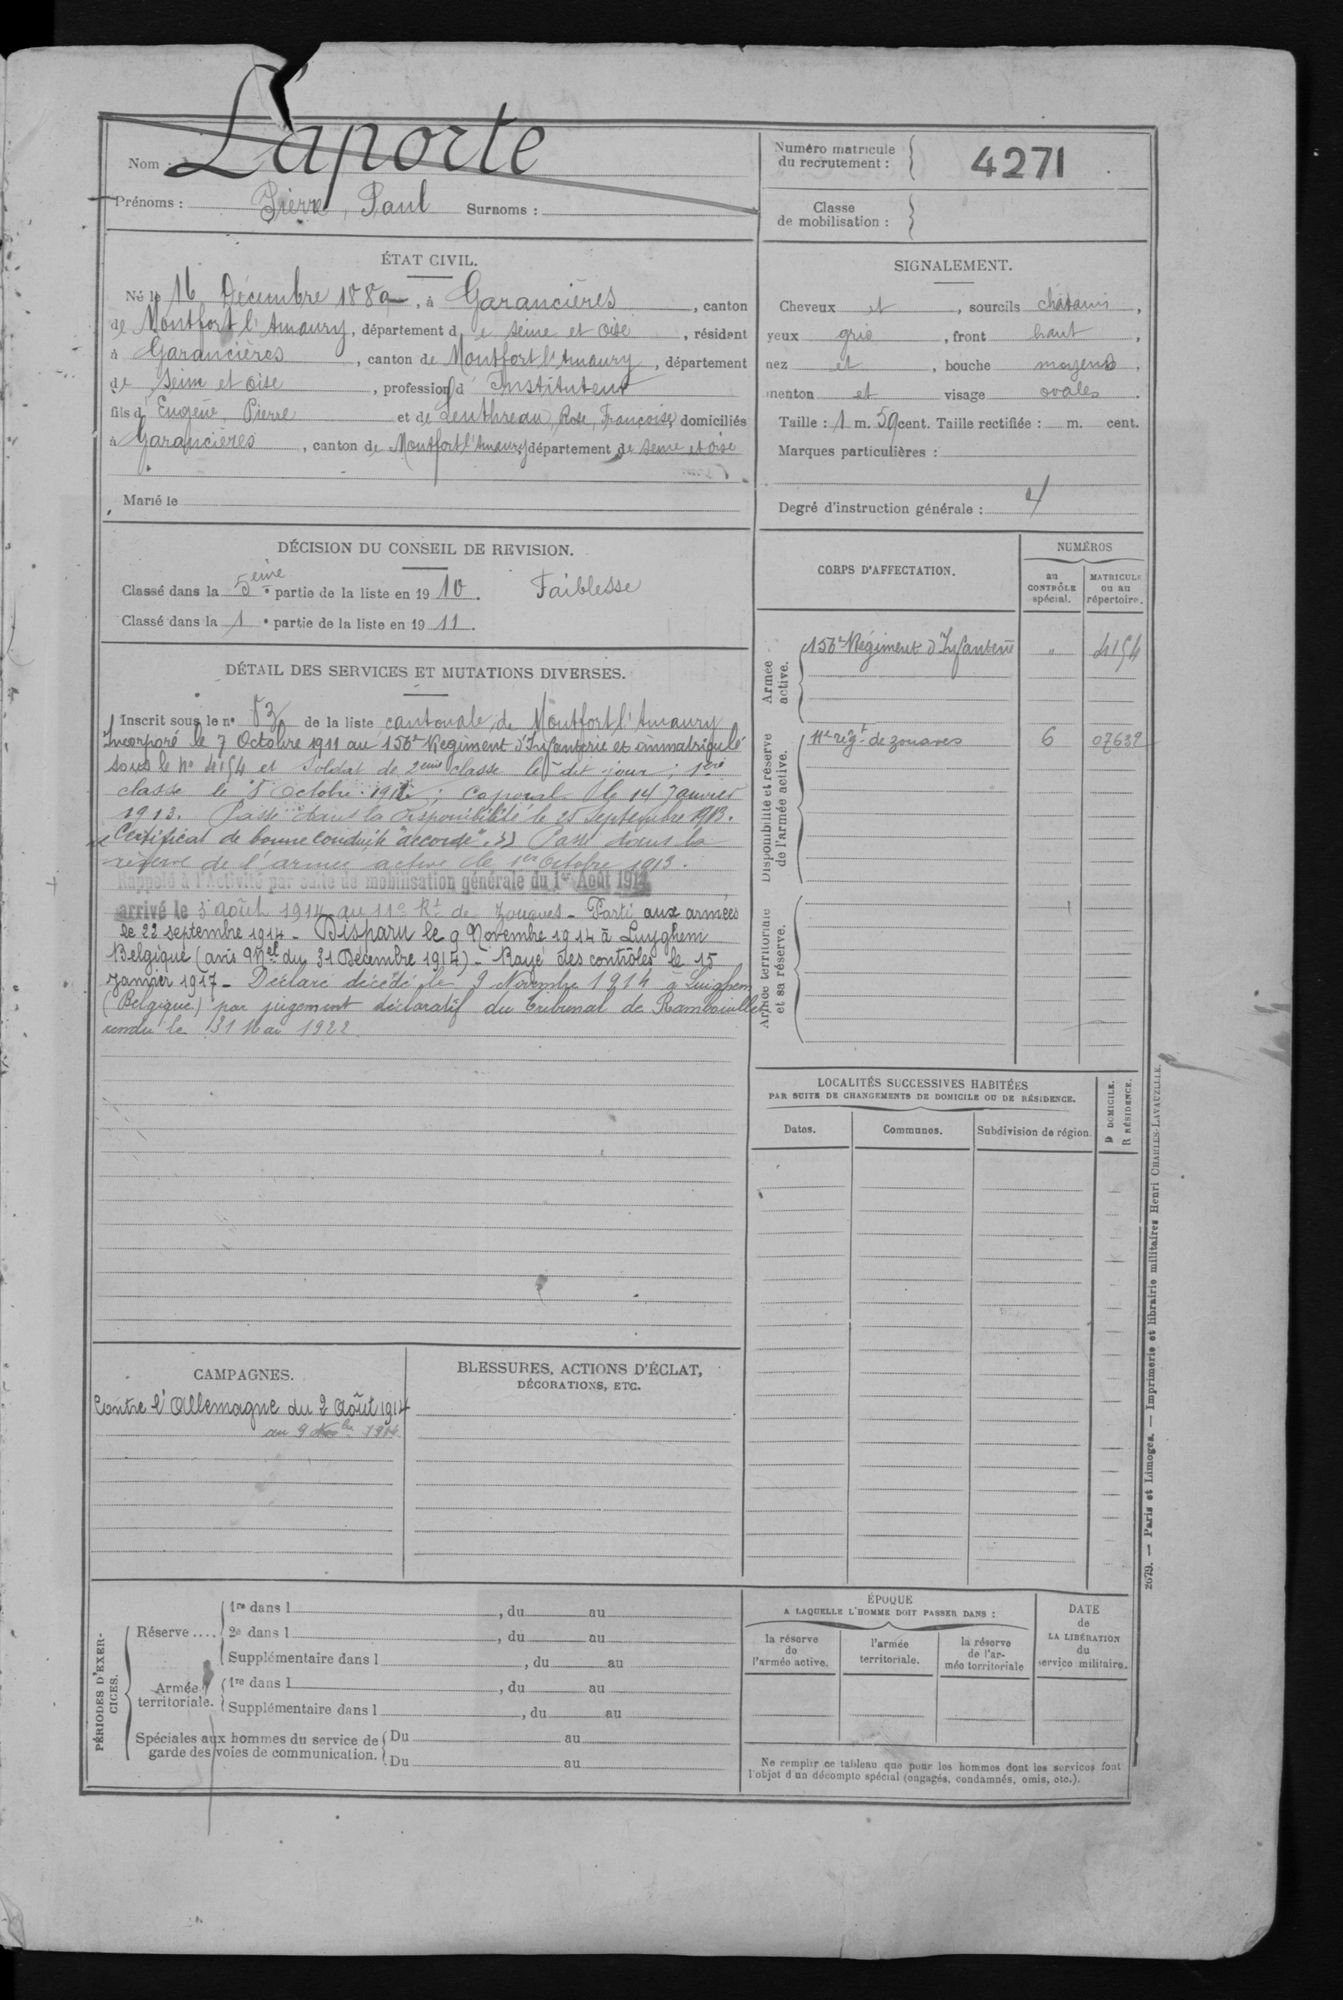 Nom : Laporte
Prénoms : Pierre, Paul Surnoms :
Numéro matricule du recrutement : 4271
Classe de mobilisation :
ÉTAT CIVIL.
Né le 16 Décembre 1889, à Garancières, canton
de Montfort l'Amaury, département de Seine et Oise, résident
à Garancières, canton de Montfort l'Amaury, département
de Seine et Oise, profession d'Instituteur
fils d'Eugène, Pierre et de Rose, Françoise, domiciliés
à Garancières, canton de Montfort l'Amaury, département de Seine et Oise
Marié le
SIGNALEMENT.
Cheveux et, sourcils chatains,
yeux gris, front haut,
nez et, bouche moyens,
menton et visage ovales.
Taille : 1 m. 59 cent. Taille rectifiée : m. cent.
Marques particulières :
Degré d'instruction générale : 4
DÉCISION DU CONSEIL DE REVISION.
Classé dans la 5ème partie de la liste en 1910. Faiblesse
Classé dans la 1e partie de la liste en 1911.
DÉTAIL DES SERVICES ET MUTATIONS DIVERSES.
Inscrit sous le n° de la liste cantonale de Montfort l'Amaury
Incorporé le 7 Octobre 1911 au 156e Régiment d'Infanterie et immatriculé
sous le n° 4154 et soldat de 2ème classe le dit jour ; 1ère
classe le 8 Octobre 1912 ; Caporal le 14 Janvier
1913. Passé dans la disponibilité le 25 Septembre 1913.
Certificat de bonne conduite "accordé". Passé dans la
réserve de l'armée active le 1er Octobre 1913.
Rappelé à l'Activité par suite de mobilisation générale du 1er Août 1914
arrivé le 3 août 1914 au 11e Rt de Zouaves - Parti aux armées
le 22 septembre 1914 - Disparu le 9 Novembre 1914 à Luyghem
Belgique (avis du 31 Décembre 1914) - Rayé des contrôles le 15
Janvier 1917 - Déclaré décédé le 9 Novembre 1914 à Luighem
(Belgique) par jugement déclaratif du Tribunal de Rambouillet
rendu le 31 Mai 1922
CORPS D'AFFECTATION.
NUMÉROS
au CONTRÔLE spécial.
MATRICULE ou au répertoire.
Armée active.
156e Régiment d'Infanterie " 4154
Disponibilité et réserve de l'armée active.
11e régt de zouaves 6 07632
Armée territoriale et sa réserve.
LOCALITÉS SUCCESSIVES HABITÉES
PAR SUITE DE CHANGEMENTS DE DOMICILE OU DE RÉSIDENCE.
Dates. Communes. Subdivision de région.
D DOMICILE.
R RÉSIDENCE.
CAMPAGNES.
Contre l'Allemagne du 2 Août 1914
au 9 Nbre 1914
BLESSURES, ACTIONS D'ÉCLAT,
DÉCORATIONS, ETC.
PÉRIODES D'EXERCICES.
Réserve ....
1re dans l , du au
2e dans l , du au
Supplémentaire dans l , du au
Armée territoriale.
1re dans l , du au
Supplémentaire dans l , du au
Spéciales aux hommes du service de garde des voies de communication.
Du au
Du au
ÉPOQUE
A LAQUELLE L'HOMME DOIT PASSER DANS :
la réserve de l'armée active.
l'armée territoriale.
la réserve de l'armée territoriale
DATE de LA LIBÉRATION du service militaire.
Ne remplir ce tableau que pour les hommes dont les services font
l'objet d'un décompte spécial (engagés, condamnés, omis, etc.).
2679. — Paris et Limoges. — Imprimerie et librairie militaires Henri CHARLES-LAVAUZELLE.